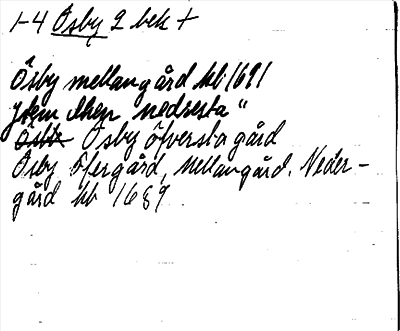 1-4 Ösby 2 bek +
Ösby mellangård kb 1691
Item dhen nedresta "
Ösby öfversta gård
Ösby öfergård, mellangård. Neder-
gård kb 1689